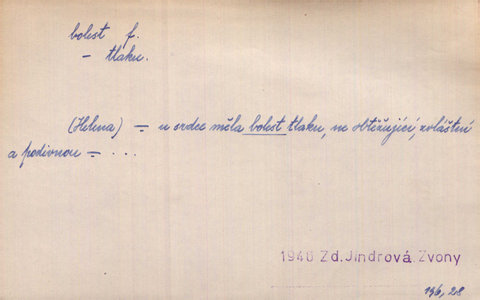 bolest f.
- tlaku.
(Helena) = u srdce měla bolest tlaku, ne obtěžující, zvláštní
a podivnou = . . .
1940 Zd. Jindrová Zvony
136, 28